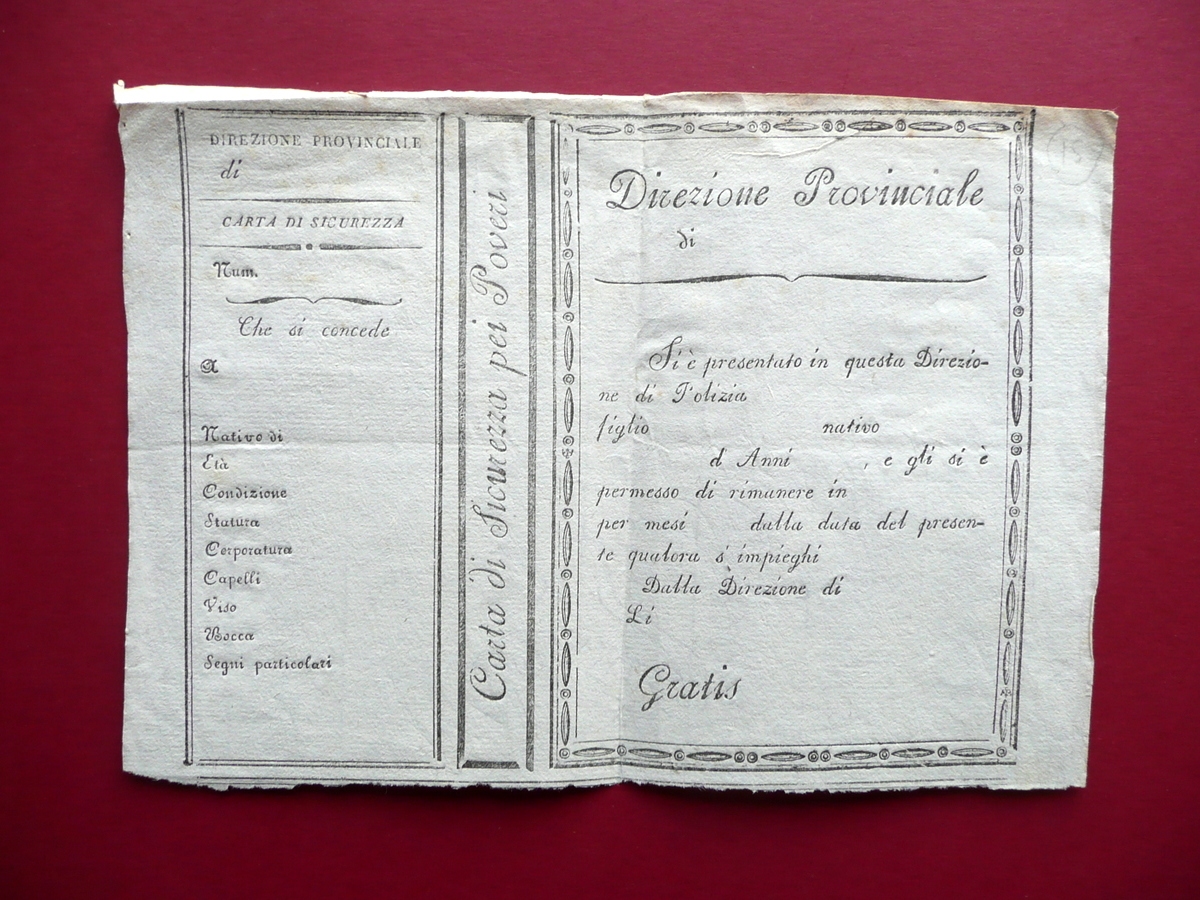 DIREZIONE PROVINCIALE
di
CARTA DI SICUREZZA
Num.
Che si concede
A
Nativo di
Età
Condizione
Statura
Corporatura
Capelli
Viso
Bocca
Segni particolari
Carta di Sicurezza pei Poveri
Direzione Provinciale
di
Si è presentato in questa Direzio-
ne di Polizia
figlio nativo
d' Anni , e gli si è
permesso di rimanere in
per mesi dalla data del presen-
te qualora s' impieghi
Dalla Direzione di
Li
Gratis
15